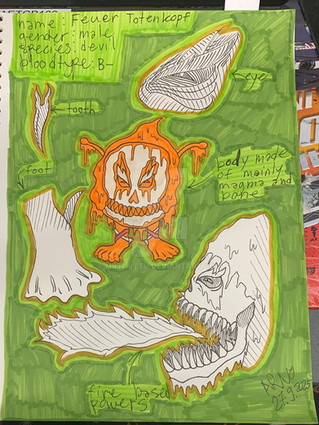 name: Feuer Totenkopf
gender: male
species: devil
bloodtype: B-
eye
tooth
foot
body made
of mainly
magma and
bone
fire based
powers